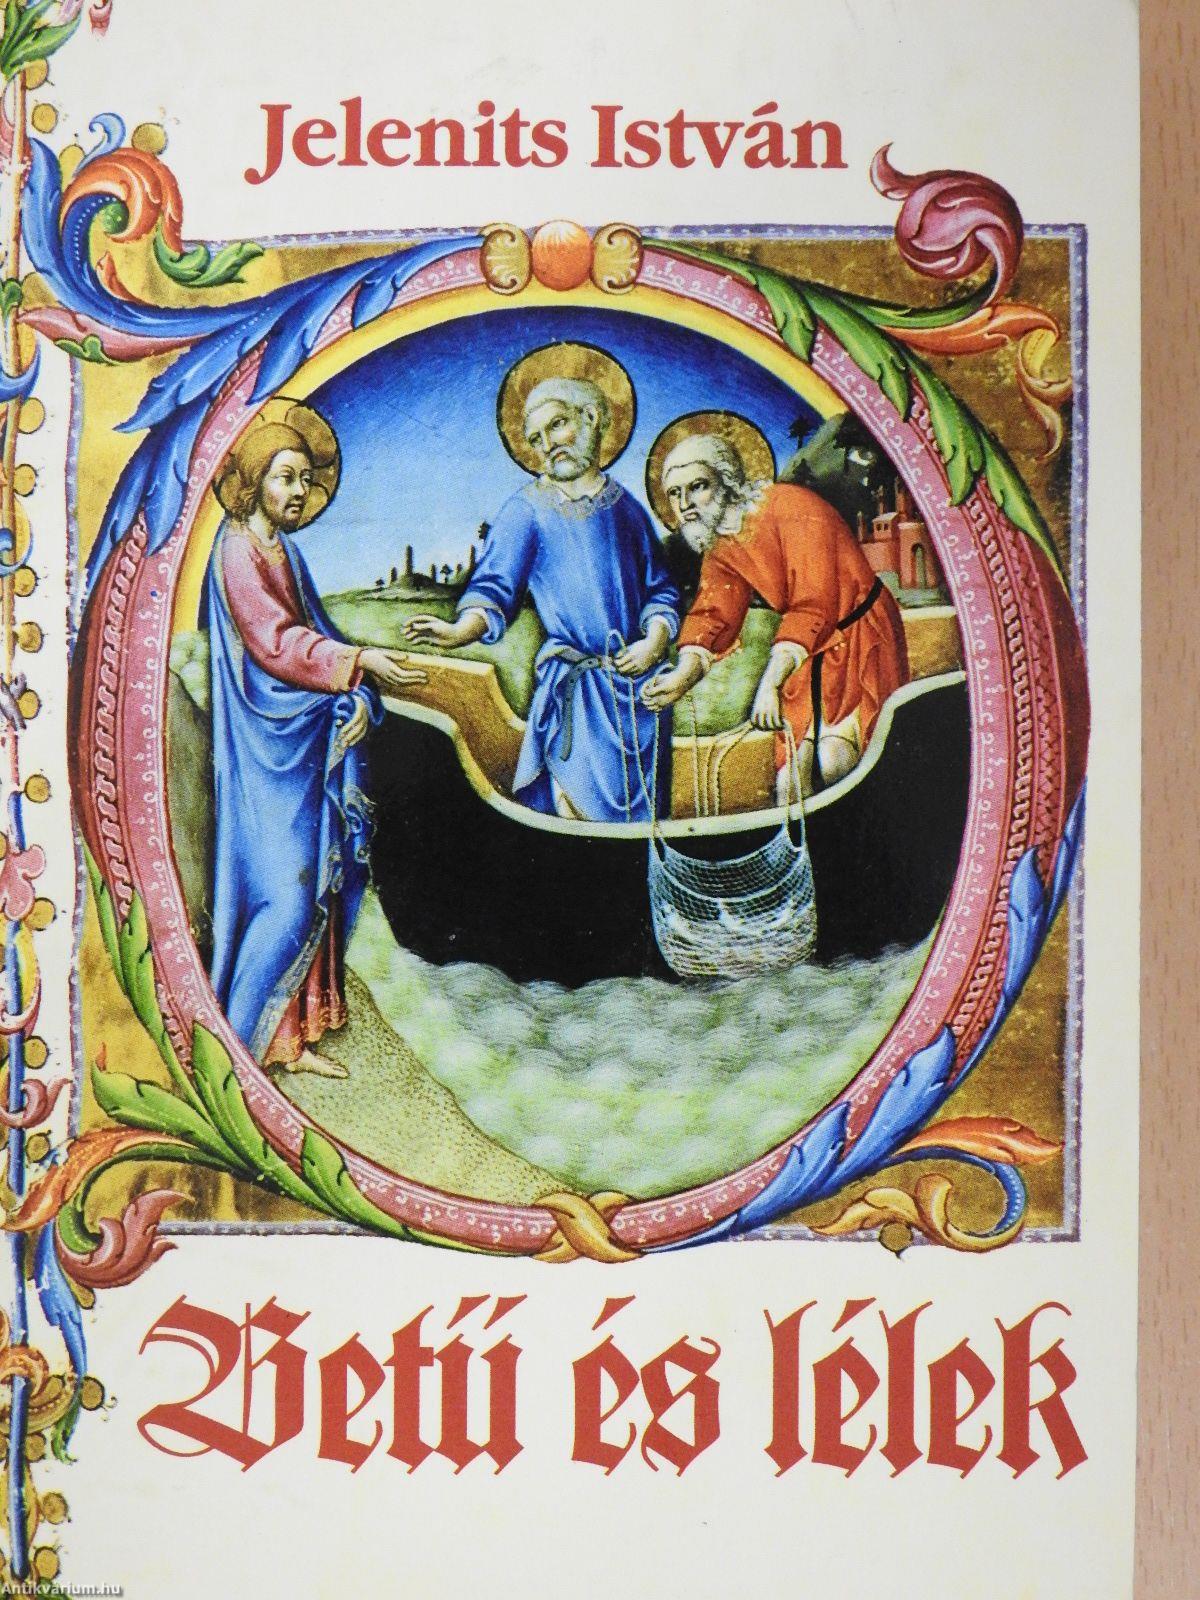 Jelenits István
Betű és lélek
Antikvárium.hu